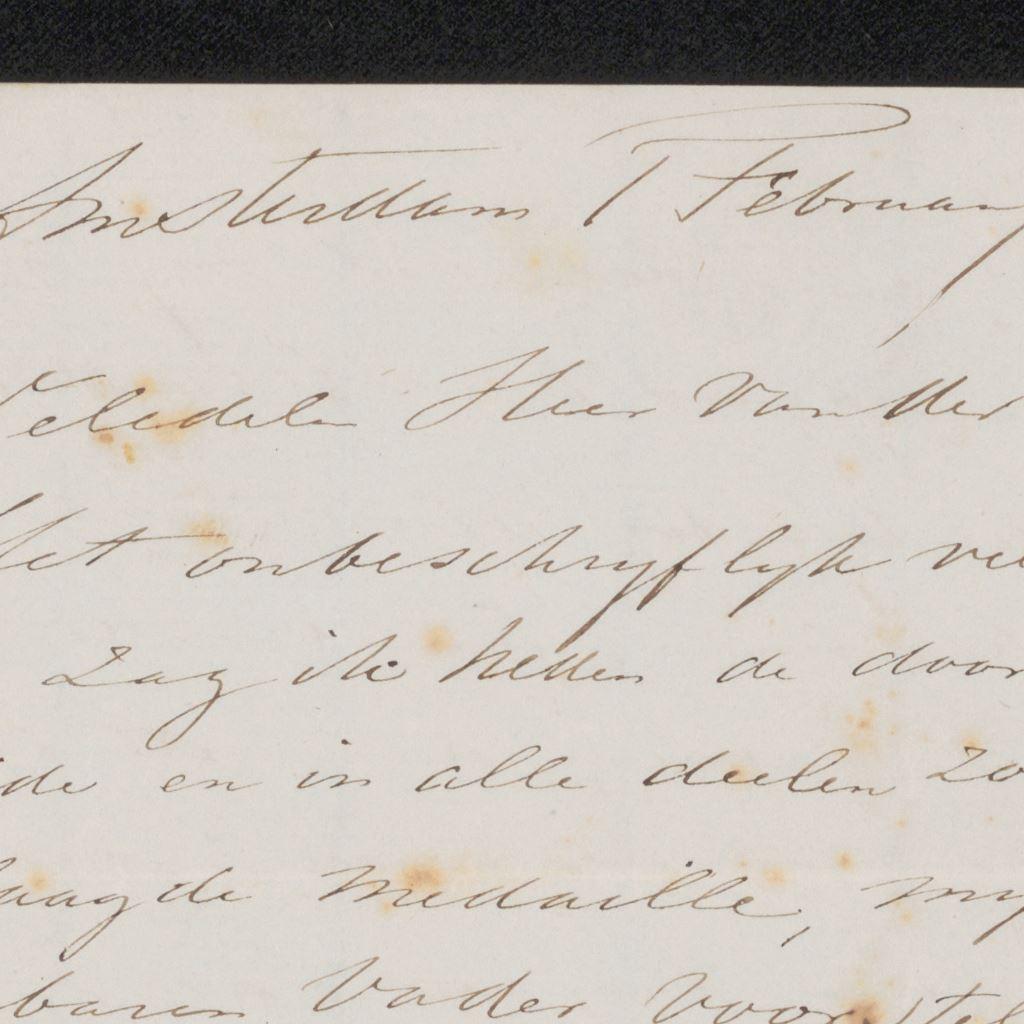 Amsterdam 1 Februar
eledelen Heer van der
Het onbeschryflyk ve
zag ik heden de door
de en in alle deelen zo
aagde medaille, my
baren Vader voorstel